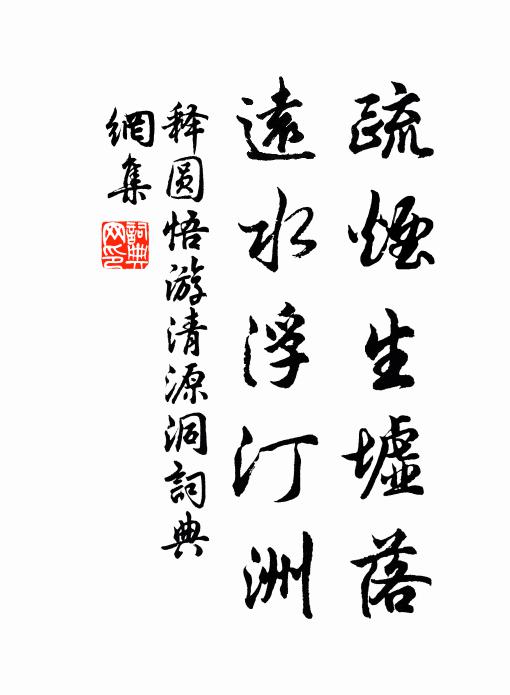 疏煙生墟落
遠水浮汀洲
释圆悟游清源洞詞典
網集
詞典
网印